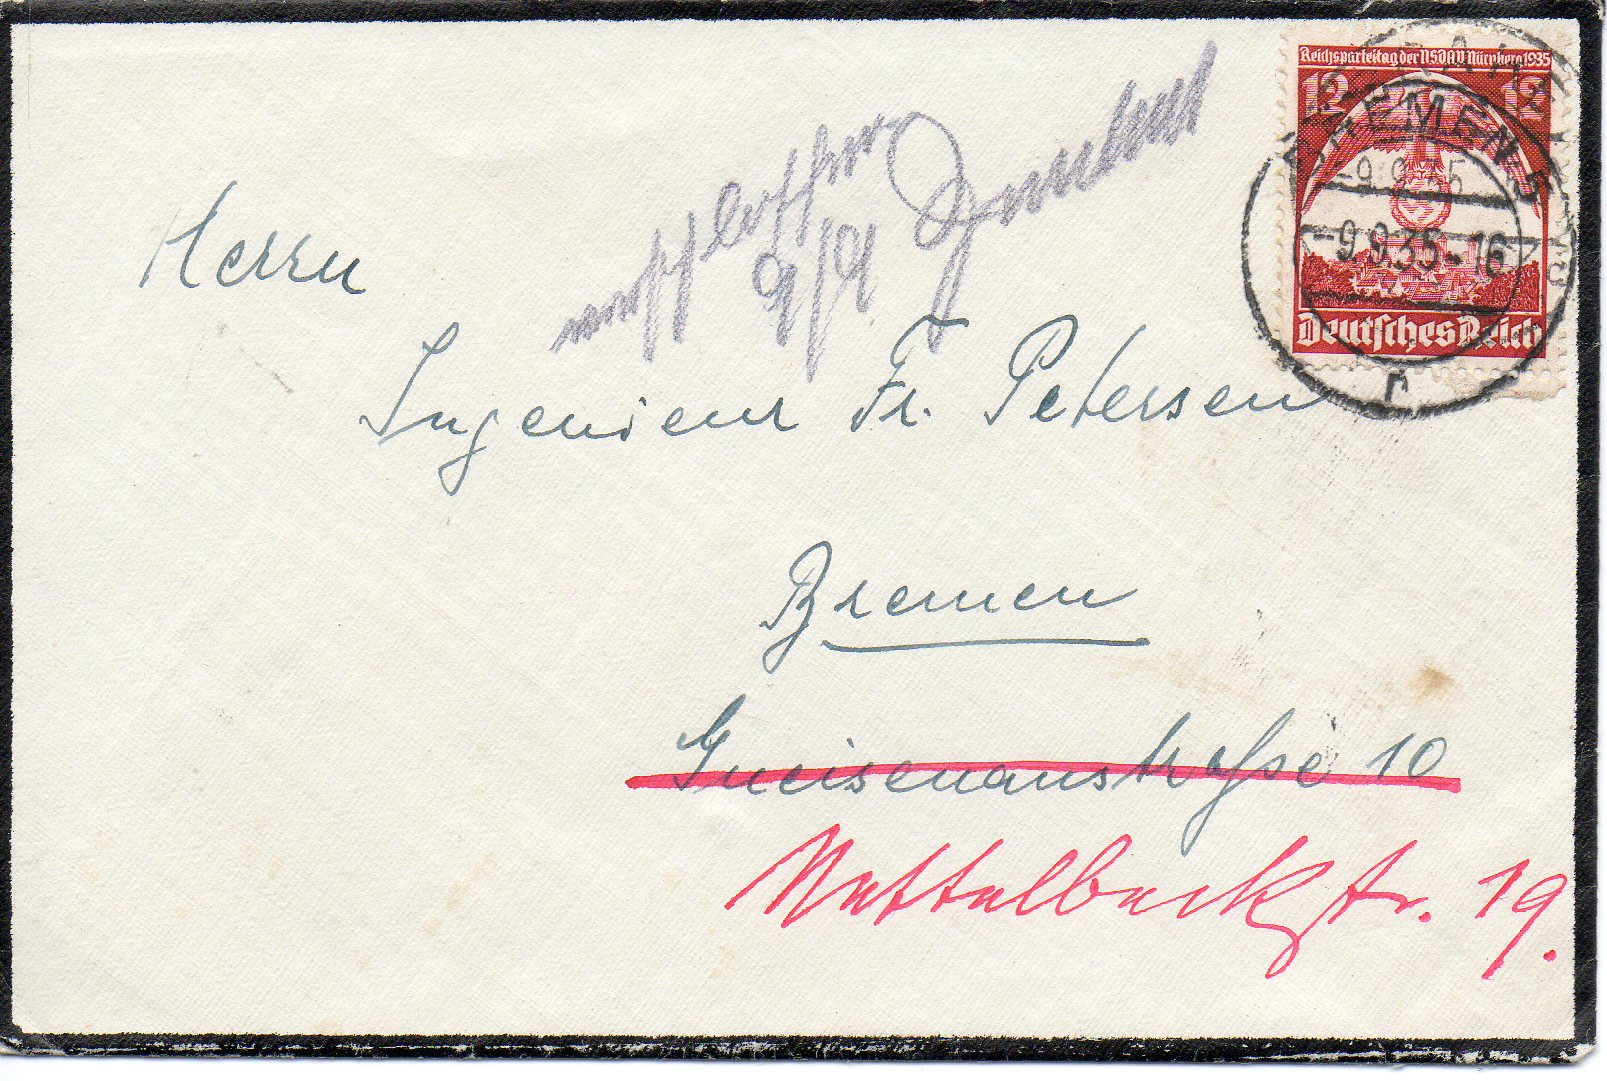 Reichsparteitag der NSDAP Nürnberg 1935
12 12
BREMEN 5
-9.9.35-16
Deutsches Reich
9/9.
Herrn
Ingenieur Fr. Petersen
Bremen
Gneisenaustraße 10
Nettelbeckstr. 19.